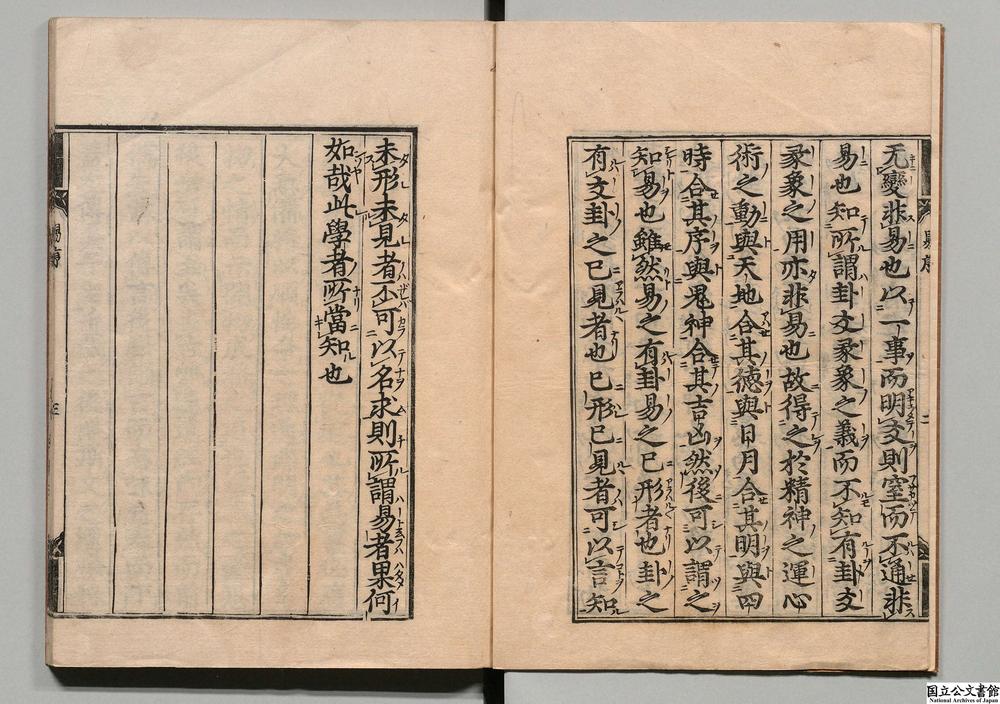 无變非易也以一事而明爻則窒而不通非
易也知所謂卦爻彖象之義而不知有卦爻
彖象之用亦非易也故得之於精神之運心
術之動與天地合其德與日月合其明與四
時合其序與鬼神合其吉凶然後可以謂之
知易也雖然易之有卦易之已形者也卦之
有爻卦之已見者也已形已見者可以言知
未形未見者不可以名求則所謂易者果何
如哉此學者所當知也
易序
二
易序
三
国立公文書館
National Archives of Japan